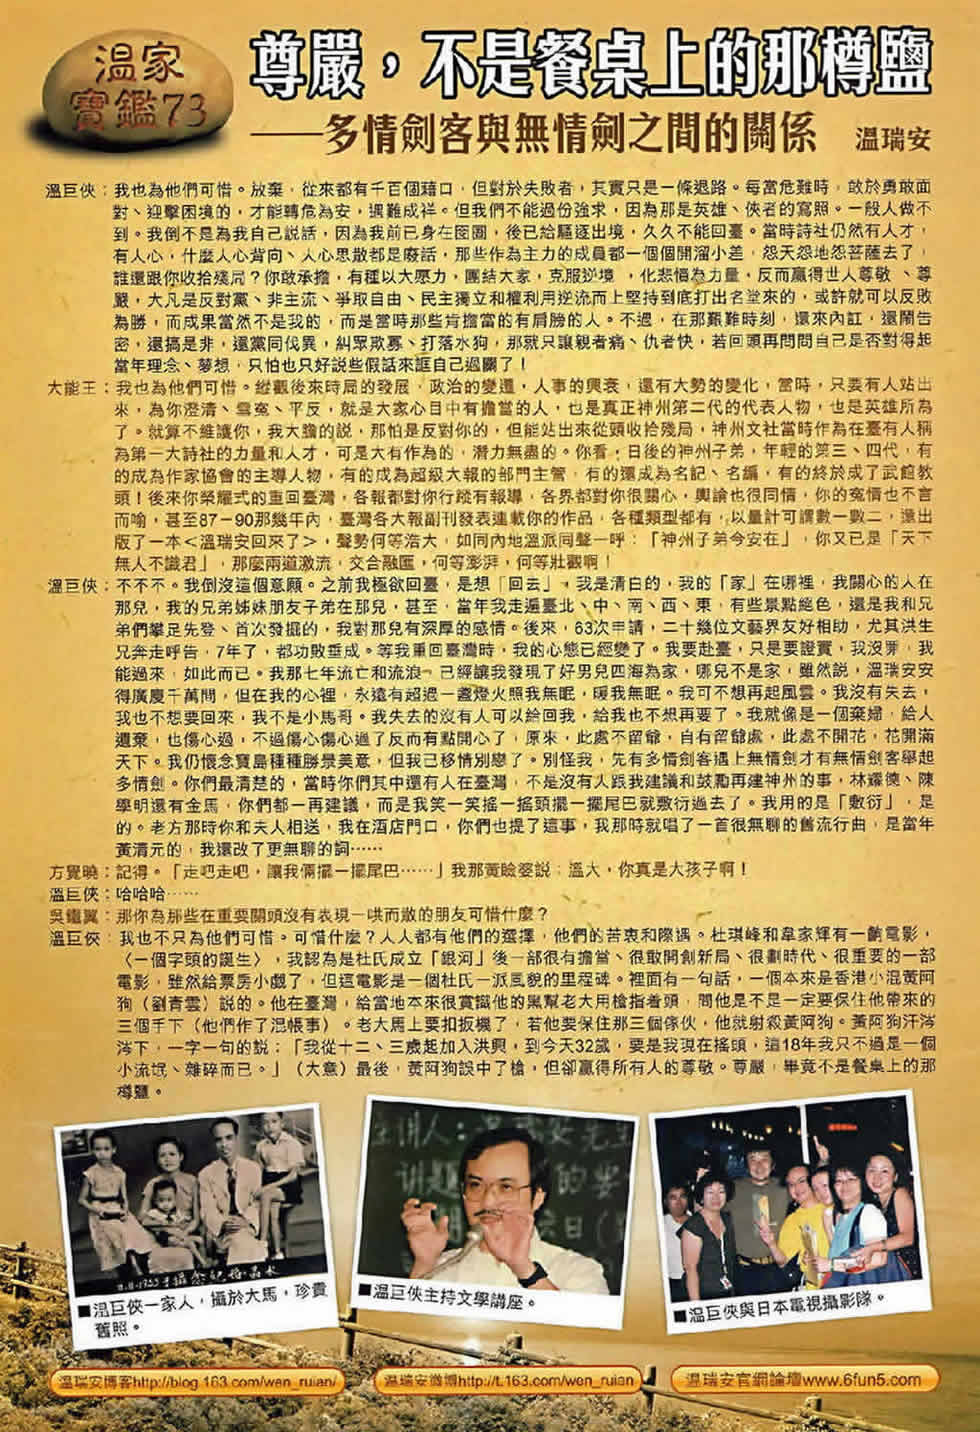 溫家
寶鑑73
尊嚴，不是餐桌上的那樽鹽
——多情劍客與無情劍之間的關係　溫瑞安
溫巨俠：我也為他們可惜。放棄，從來都有千百個藉口，但對於失敗者，其實只是一條退路。每當危難時，敢於勇敢面
對、迎擊困境的，才能轉危為安，遇難成祥。但我們不能過份強求，因為那是英雄、俠者的寫照。一般人做不
到。我倒不是為我自己説話，因為我前已身在囹圄，後已給驅逐出境，久久不能回臺。當時詩社仍然有人才，
有人心，什麼人心背向、人心思散都是廢話，那些作為主力的成員都一個個開溜小差，怨天怨地怨菩薩去了，
誰還跟你收拾殘局？你敢承擔，有種以大愿力，團結大家，克服逆境，化悲憤為力量，反而贏得世人尊敬、尊
嚴，大凡是反對黨、非主流、爭取自由、民主獨立和權利用逆流而上堅持到底打出名堂來的，或許就可以反敗
為勝，而成果當然不是我的，而是當時那些肯擔當的有肩膀的人。不過，在那艱難時刻，還來內訌，還鬧告
密，還搞是非，還黨同伐異，糾眾欺寡、打落水狗，那就只讓親者痛、仇者快，若回頭再問問自己是否對得起
當年理念、夢想，只怕也只好說些假話來誆自己過關了！
大能王：我也為他們可惜。縱觀後來時局的發展，政治的變遷，人事的興衰，還有大勢的變化，當時，只要有人站出
來，為你澄清、雪冤、平反，就是大家心目中有擔當的人，也是真正神州第二代的代表人物，也是英雄所為
了。就算不維護你，我大膽的說，那怕是反對你的，但能站出來從頭收拾殘局，神州文社當時作為在臺有人稱
為第一大詩社的力量和人才，可是大有作為的，潛力無盡的。你看，日後的神州子弟，年輕的第三、四代，有
的成為作家協會的主導人物，有的成為超級大報的部門主管，有的還成為名記、名編，有的終於成了武館教
頭！後來你榮耀式的重回臺灣，各報都對你行蹤有報導，各界都對你很關心，輿論也很同情，你的冤情也不言
而喻，甚至87－90那幾年內，臺灣各大報副刊發表連載你的作品，各種類型都有，以量計可謂數一數二，還出
版了一本＜溫瑞安回來了＞，聲勢何等浩大，如同內地溫派同聲一呼：「神州子弟今安在」，你又已是「天下
無人不識君」，那麼兩道激流，交合融匯，何等澎湃，何等壯觀啊！
溫巨俠：不不不。我倒沒這個意願。之前我極欲回臺，是想「回去」，我是清白的，我的「家」在哪裡，我關心的人在
那兒，我的兄弟姊妹朋友子弟在那兒，甚至，當年我走遍臺北、中、南、西、東，有些景點絕色，還是我和兄
弟們攀足先登、首次發掘的，我對那兒有深厚的感情。後來，63次申請，二十幾位文藝界友好相助，尤其洪生
兄奔走呼告，7年了，都功敗垂成。等我重回臺灣時，我的心態已經變了。我要赴臺，只是要證實，我沒罪，我
能過來，如此而已。我那七年流亡和流浪，已經讓我發現了好男兒四海為家，哪兒不是家，雖然說，溫瑞安安
得廣廈千萬間，但在我的心裡，永遠有超過一盞燈火照我無眠，暖我無眠。我可不想再起風雲。我沒有失去，
我也不想要回來，我不是小馬哥。我失去的沒有人可以給回我，給我也不想再要了。我就像是一個棄婦，給人
遺棄，也傷心過，不過傷心傷心過了反而有點開心了，原來，此處不留爺，自有留爺處，此處不開花，花開滿
天下。我仍懷念寶島種種勝景美意，但我已移情別戀了。別怪我，先有多情劍客遇上無情劍才有無情劍客舉起
多情劍。你們最清楚的，當時你們其中還有人在臺灣，不是沒有人跟我建議和鼓勵再建神州的事，林耀德、陳
學明還有金馬，你們都一再建議，而是我笑一笑搖一搖頭擺一擺尾巴就敷衍過去了。我用的是「敷衍」，是
的。老方那時你和夫人相送，我在酒店門口，你們也提了這事，我那時就唱了一首很無聊的舊流行曲，是當年
黃清元的，我還改了更無聊的詞……
方覺曉：記得。「走吧走吧，讓我倆擺一擺尾巴……」我那黃臉婆說：溫大，你真是大孩子啊！
溫巨俠：哈哈哈……
吳鐵翼：那你為那些在重要關頭沒有表現一哄而散的朋友可惜什麼？
溫巨俠：我也不只為他們可惜。可惜什麼？人人都有他們的選擇，他們的苦衷和際遇。杜琪峰和韋家輝有一齣電影，
〈一個字頭的誕生〉，我認為是杜氏成立「銀河」後一部很有擔當、很敢開創新局、很劃時代、很重要的一部
電影，雖然給票房小戲了，但這電影是一個杜氏一派風貌的里程碑。裡面有一句話，一個本來是香港小混黃阿
狗（劉青雲）說的。他在臺灣，給當地本來很賞識他的黑幫老大用槍指着頭，問他是不是一定要保住他帶來的
三個手下（他們作了混帳事）。老大馬上要扣扳機了，若他要保住那三個傢伙，他就射殺黃阿狗。黃阿狗汗涔
涔下，一字一句的説：「我從十二、三歲起加入洪興，到今天32歲，要是我現在搖頭，這18年我只不過是一個
小流氓、雜碎而已。」（大意）最後，黃阿狗誤中了槍，但卻贏得所有人的尊敬。尊嚴，畢竟不是餐桌上的那
樽鹽。
■溫巨俠一家人，攝於大馬，珍貴
舊照。
■溫巨俠主持文學講座。
■溫巨俠與日本電視攝影隊。
溫瑞安博客http://blog.163.com/wen_ruian/
溫瑞安微博http://t.163.com/wen_ruian
溫瑞安官網論壇www.6fun5.com